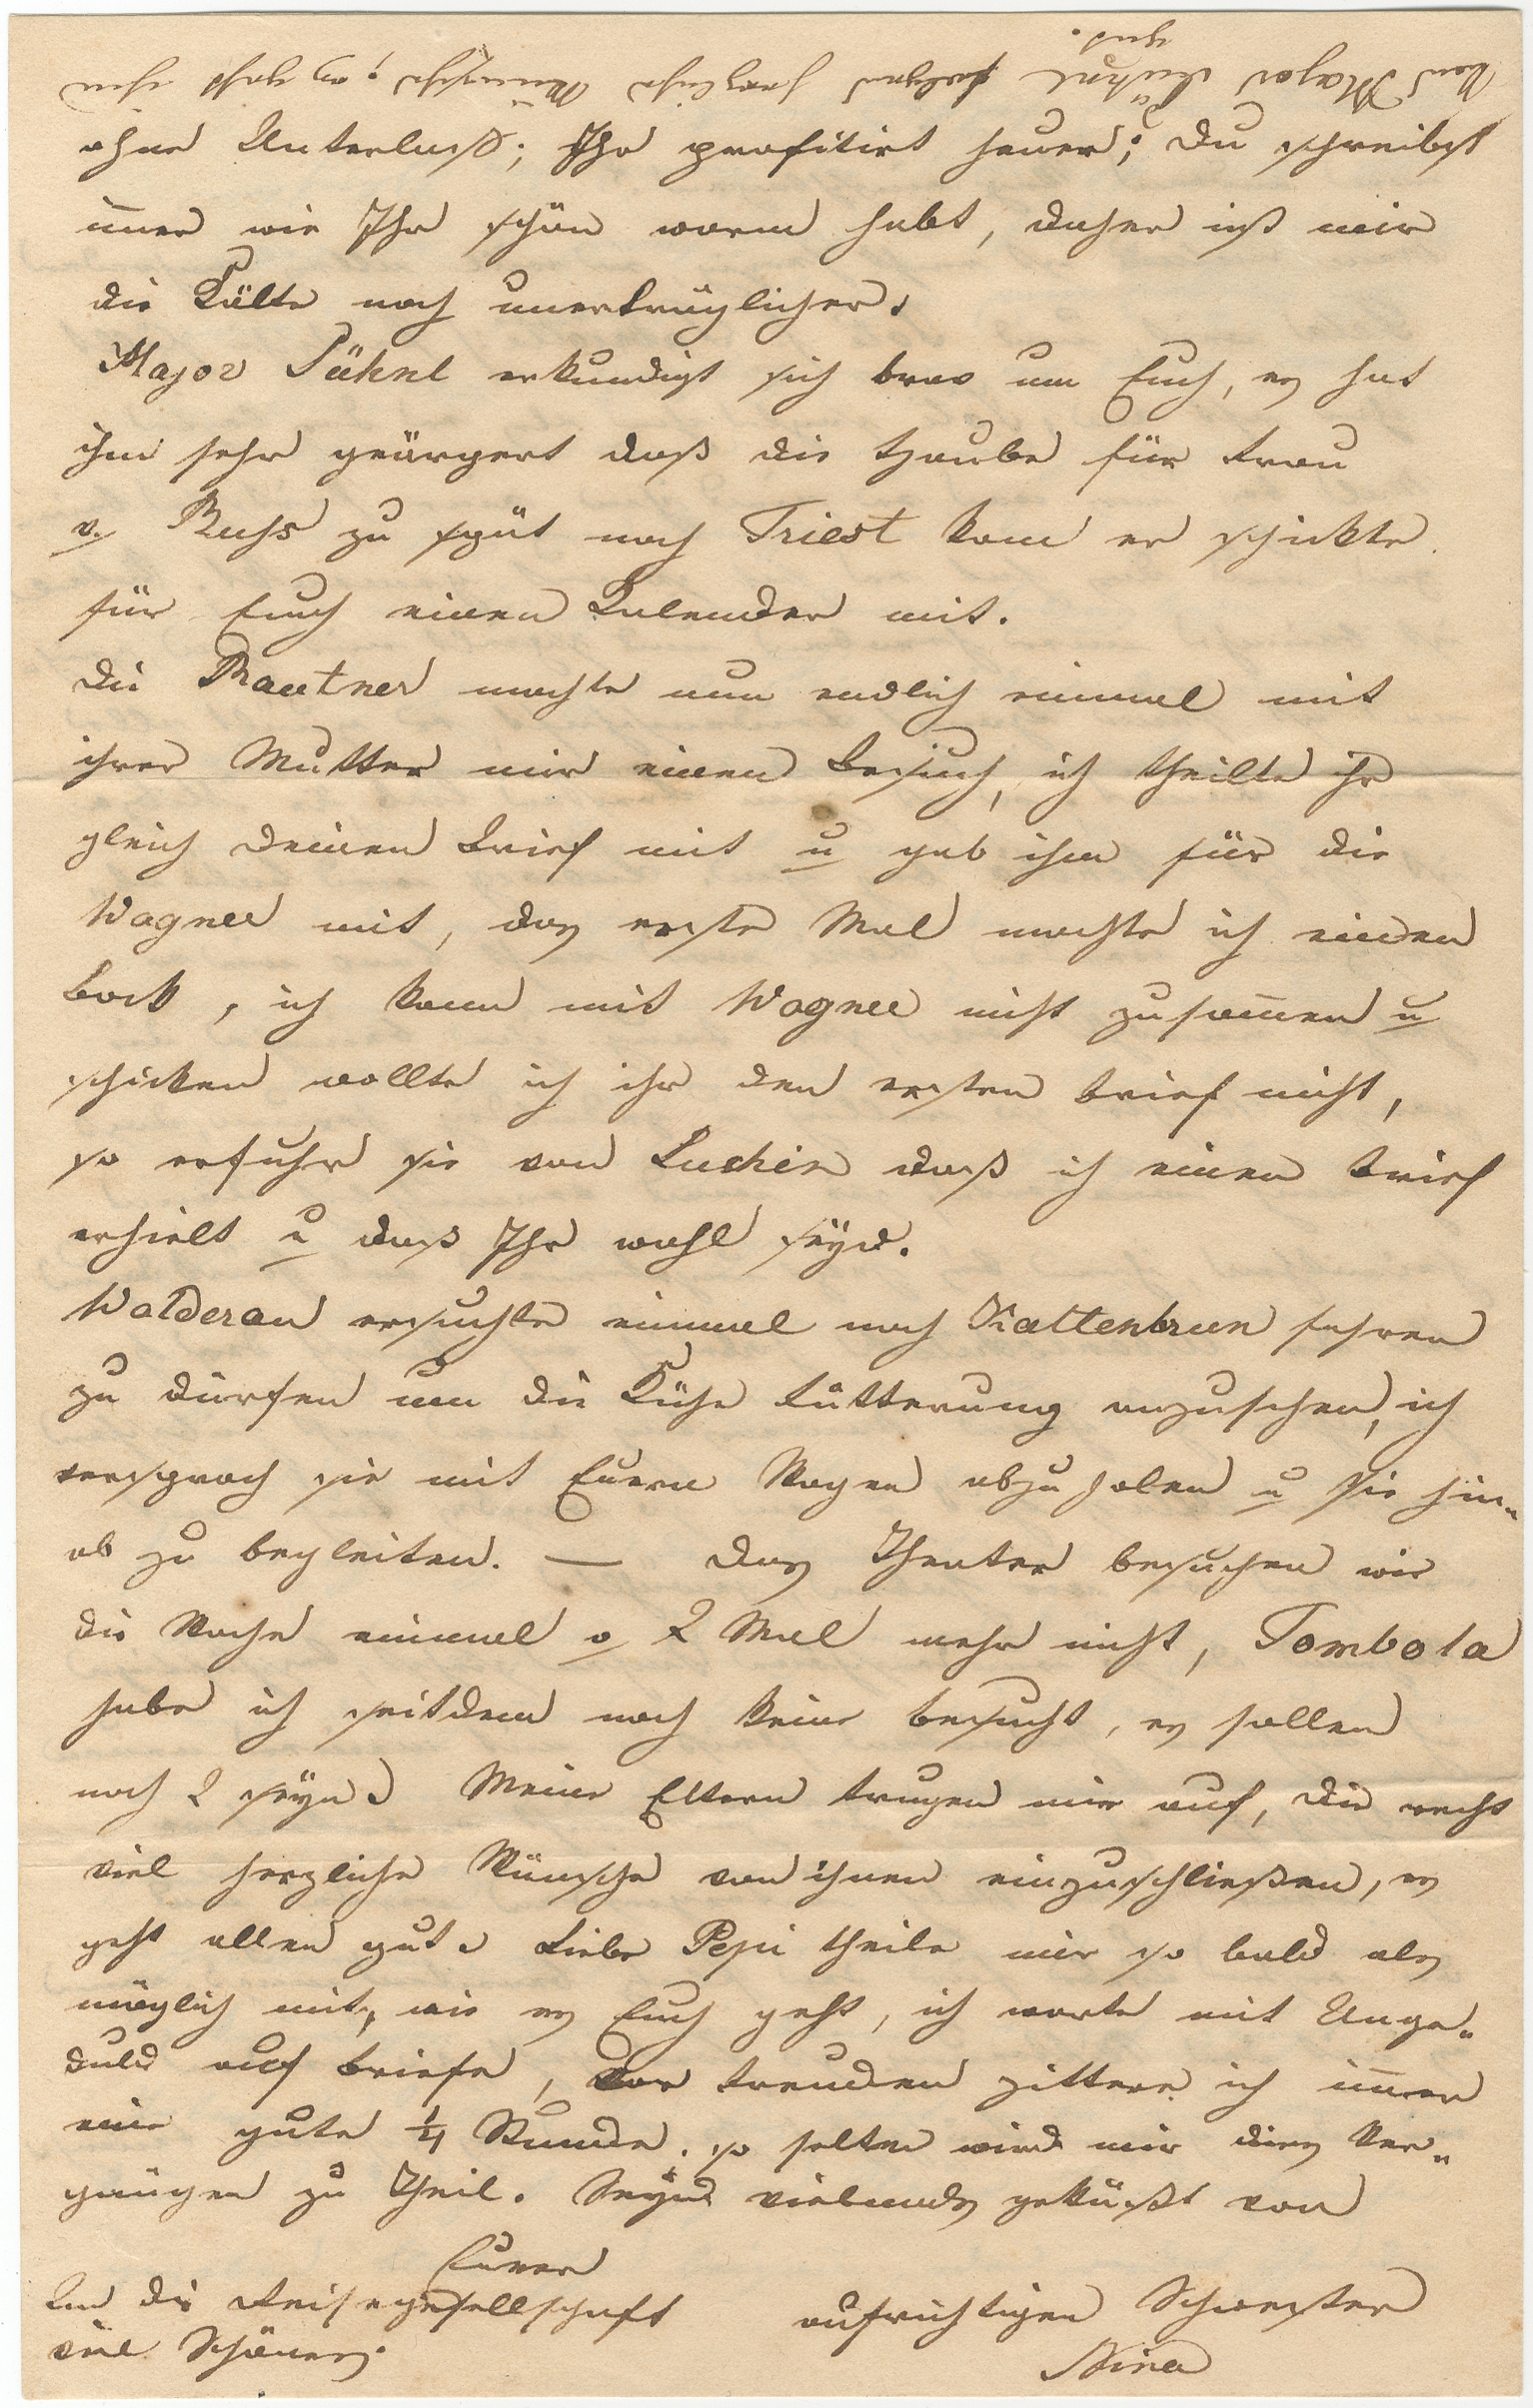 Von Major Kühnl folgen herzliche Wünsche; es geht ihm
gut.
ohne Unterlaß; Ihr profitirt heuer; Du schreibst
im̄er wie Ihr schön warm habt, daher ist mir
die Kälte noch unerträglicher.
Major Kühnl erkundigt sich brav um Euch, es hat
ihm sehr geärgert daß die Haube für Frau
v. Buhs zu spät nach Triest kam er schickte
für Euch einen Kalender mit.
Die Rautner machte nun endlich einmal mit
ihrer Mutter mir einen Besuch, ich theilte ihr
gleich Deinen Brief mit u gab ihm für die
Wagner mit, das erste Mal machte ich einen
Bock, ich kam mit Wagner nicht zusam̄en u
schicken wollte ich ihr den ersten Brief nicht,
so erfuhr sie von daß ich einen Brief
erhielt u daß Ihr wohl seÿd.
Walderau ersuchte einmal nach Kaltenbrun fahren
zu dürfen um die Kühe Fütterung anzusehen, ich
versprach sie mit Euern Wagen abzuholen u sie hin„
ab zu begleiten. — Das Theater besuchen wir
die Woche einmal o 2 Mal mehr nicht, Tombola
habe ich seitdem noch keine besucht, es sollen
noch 2 seÿn. Meine Eltern trugen mir auf, Dir recht
viel herzliche Wünsche von ihnen einzuschließen, es
geht allen gut. Liebe Pepi theile mir so bald als
möglich mit, wie es Euch geht, ich warte mit Unge„
duld auf Briefe, vor Freuden zittere ich im̄er
eine gute ¼ Stunde. so selten wird mir dies Ver„
gnügen zu Theil. Seÿd vielmals geküßt von
Eurer
aufrichtigen Schwester
Nina
An die Reisegesellschaft
viel Schönes.